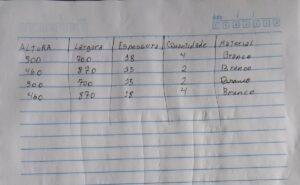 ALTURA Largura Espessura Quantidade Material
500 700 18 4 Branco
460 870 15 2 Branco
500 700 15 2 Branco
460 870 18 4 Branco